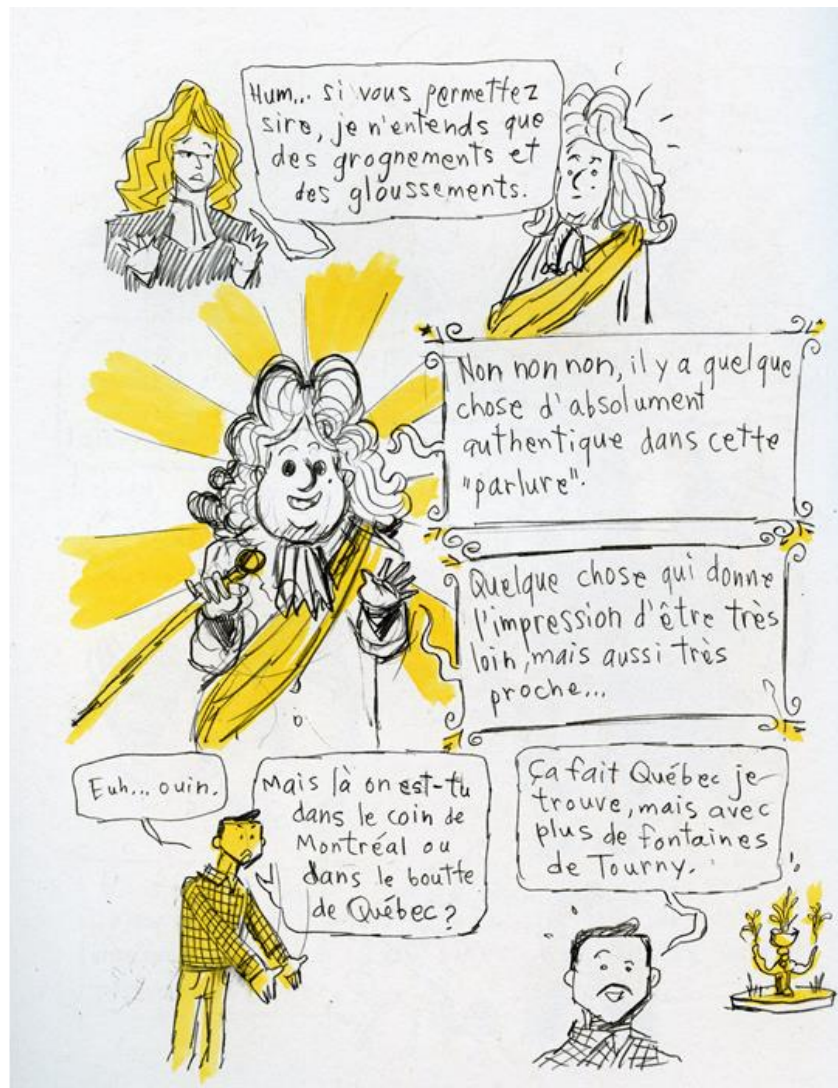 Hum... si vous permettez
sire, je n'entends que
des grognements et
des gloussements.
Non non non, il y a quelque
chose d'absolument
authentique dans cette
"parlure".
Quelque chose qui donne
l'impression d'être très
loin, mais aussi très
proche...
Euh... ouin.
Mais là on est-tu
dans le coin de
Montréal ou
dans le boutte
de Québec?
Ça fait Québec je
trouve, mais avec
plus de fontaines
de Tourny.